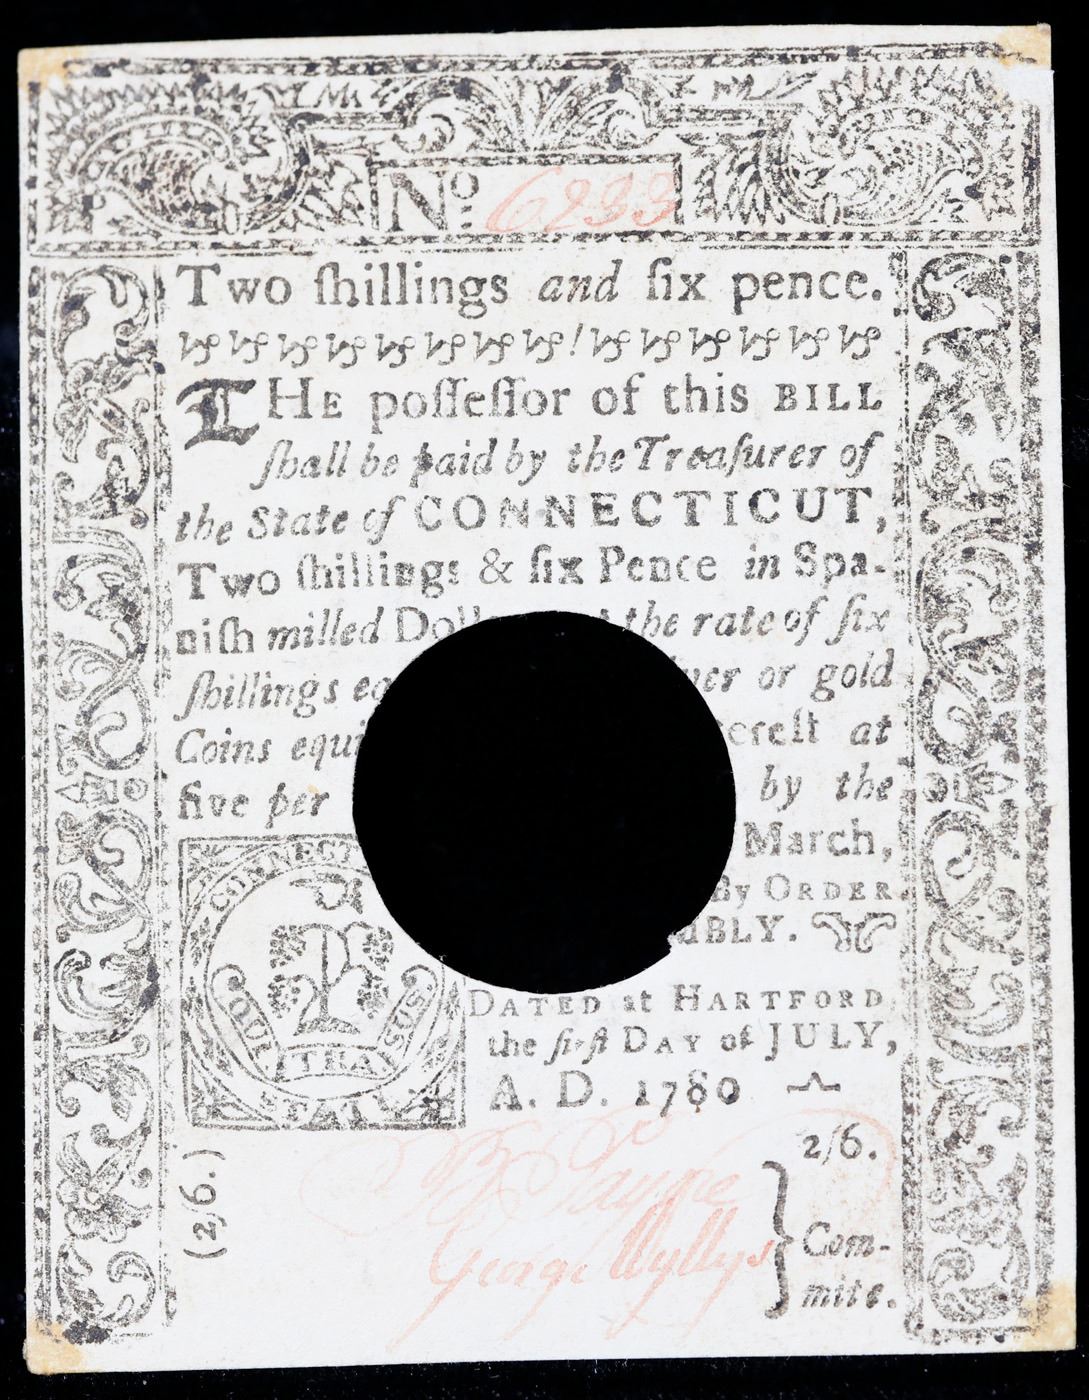 No: 6233
Two ſhillings and ſix pence.
THE poſſeſſor of this BILL
ſhall be paid by the Treaſurer of
the State of CONNECTICUT,
Two ſhillings & ſix Pence in Spa-
niſh milled Doll the rate of ſix
ſhillings or gold
Coins at
five per by the
March,
By ORDER
MBLY.
CONNECT
QUI TRA SUS
DATED at HARTFORD
the firſt DAY of JULY,
A. D. 1780
2/6.
(2/6.)
George Wyllys
Com-
mite.